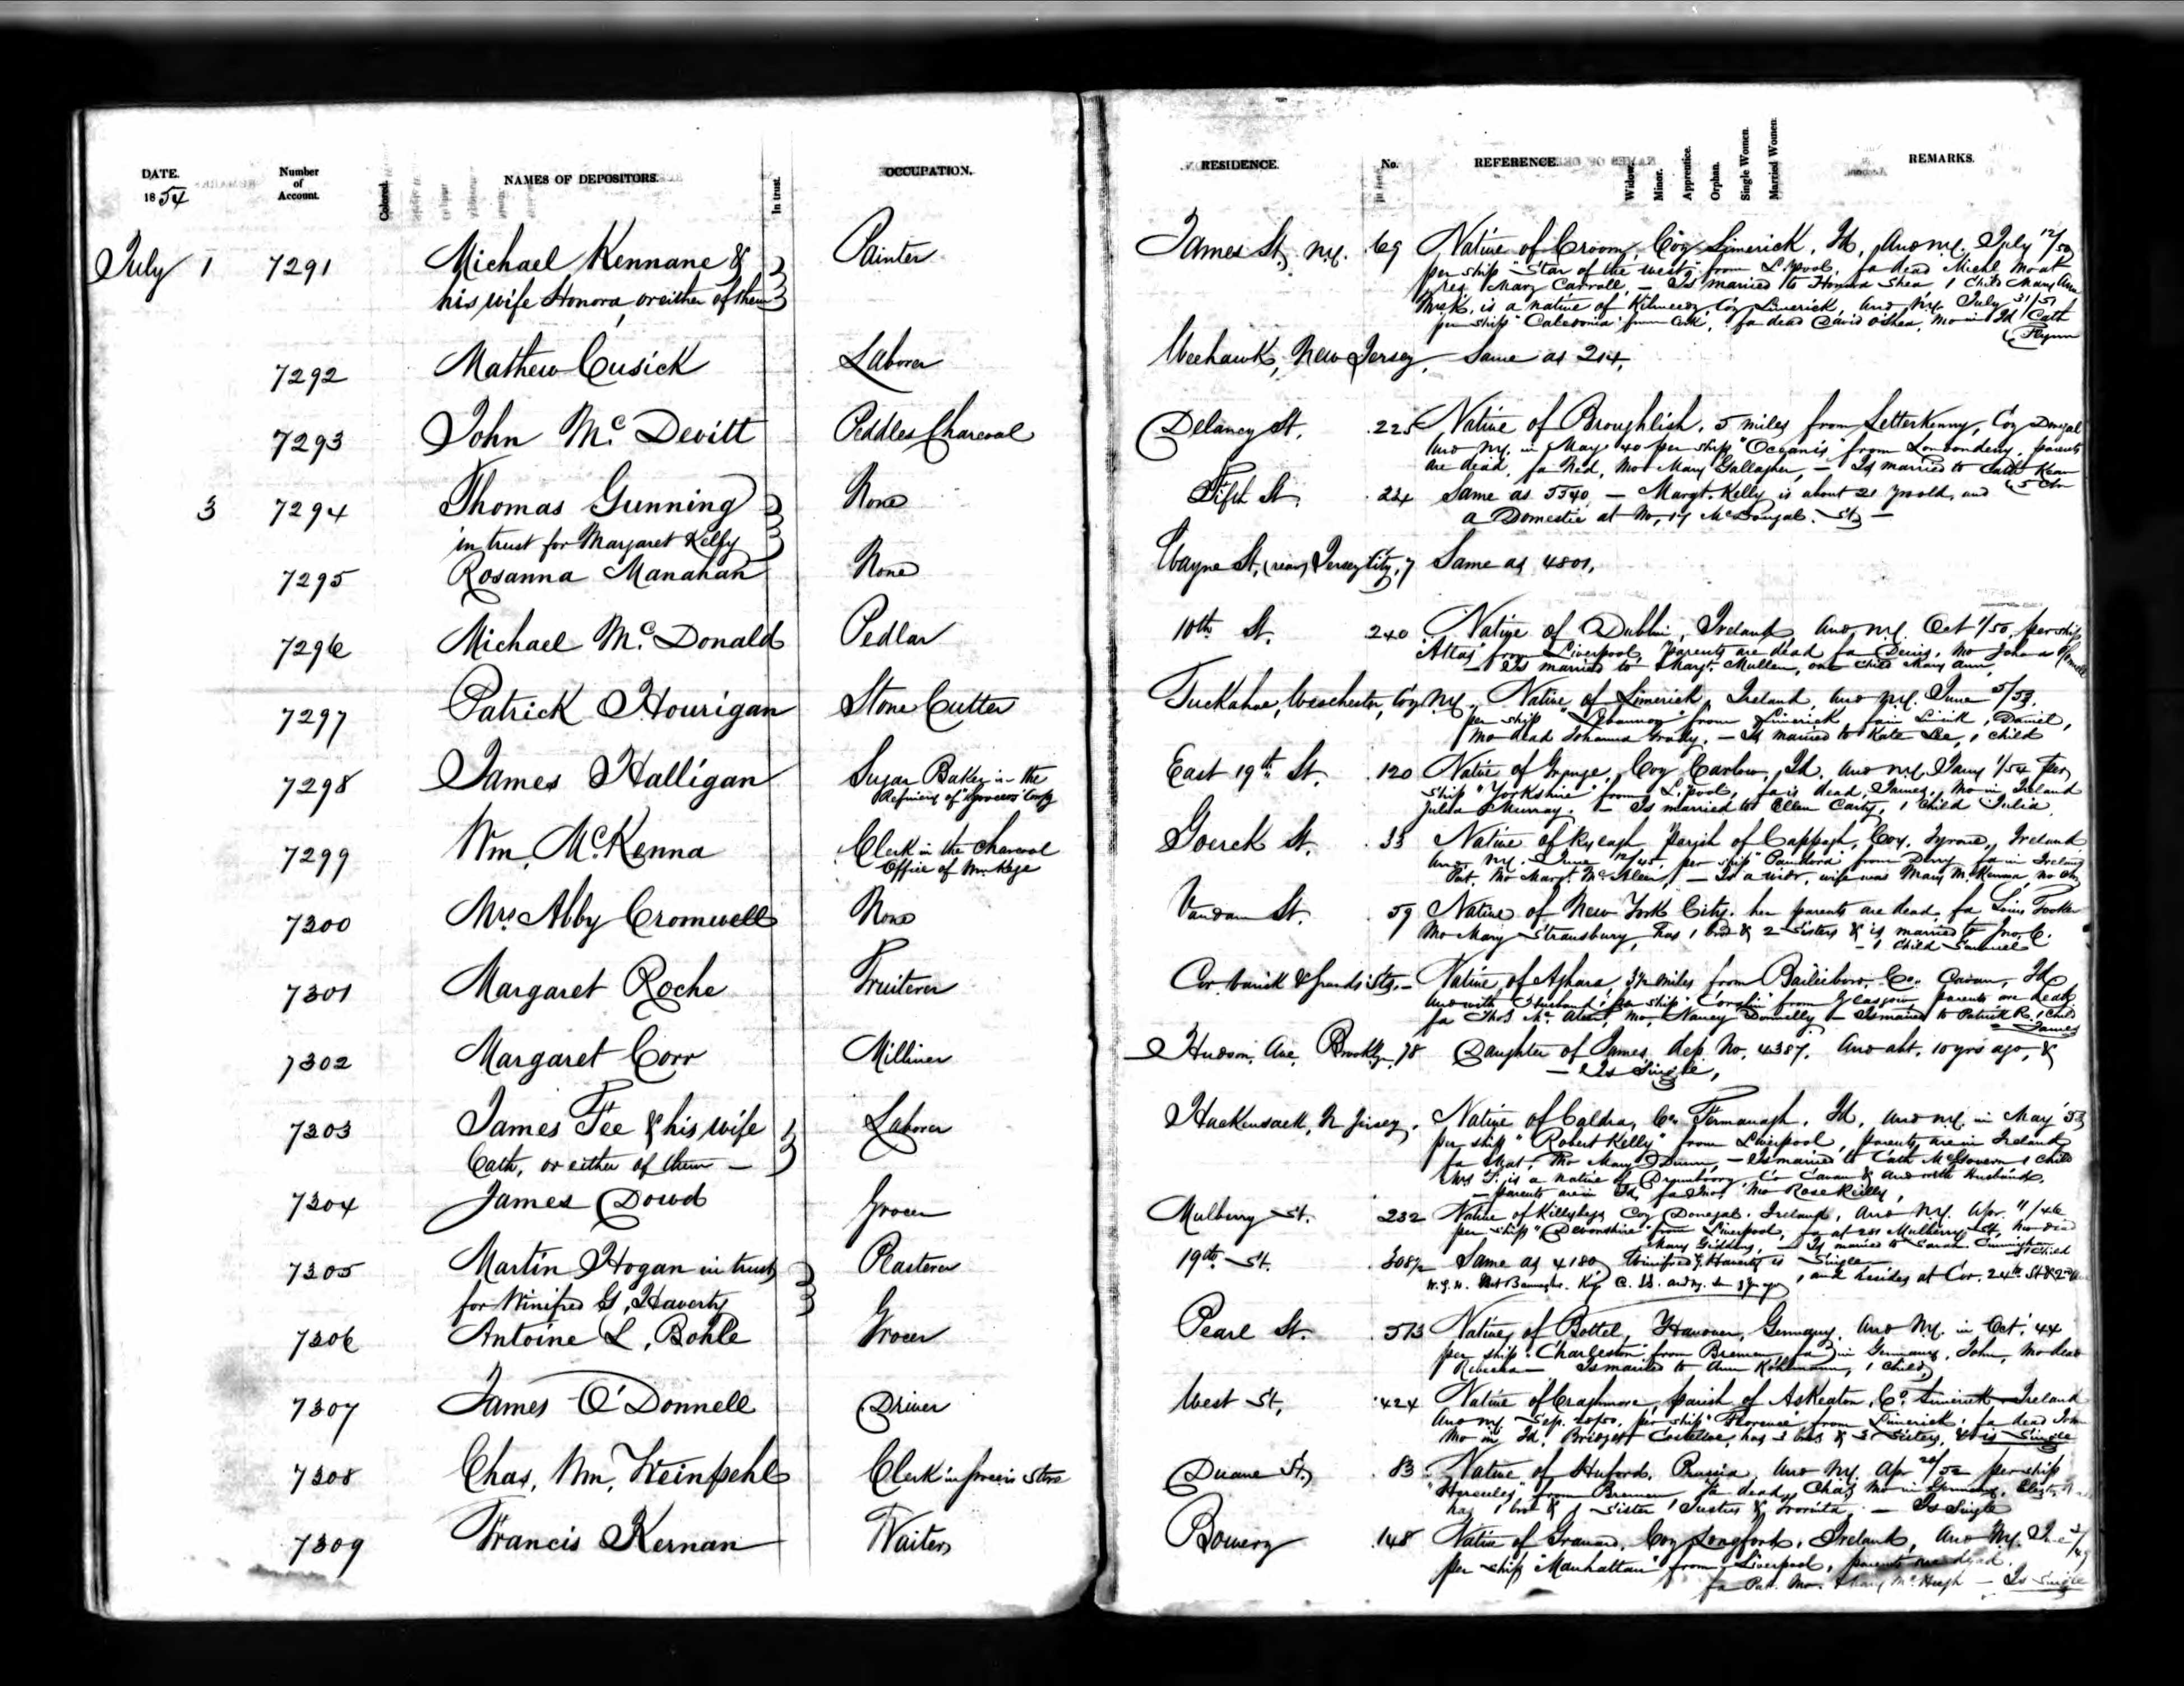 DATE. Number of Account. Colored. NAMES OF DEPOSITORS. In trust. OCCUPATION. RESIDENCE. No. REFERENCE. Widow. Minor. Apprentice. Orphan. Single Women. Married Women. REMARKS.
1854
July 1 7291 Michael Kennane & Painter James St, N.Y. 69 Native of Croom, Coy Limerick, Id, Arrd N.Y. July 12/50
his wife Honora, or either of them per ship "Star of the West" from L'pool, fa dead Michl Mo at
Mary Carroll, — Is married to Honora Shea, 1 Child Mary Ann
Mrs K. is a native of Kilmeedy, Coy Limerick, Arrd N.Y. July 31/51
per ship "Caledonia" from Cork, fa dead David O'Shea, Mo in Id Cath
Flynn
7292 Mathew Cusick Laborer Weehawk, New Jersey, Same as 214,
7293 John McDevitt Peddles Charcoal Delancy St. 225 Native of Broughlish, 5 miles from Letterkenny, Coy Donegal
Arrd N.Y. in May 40 per ship "Oceanis" from Londonderry, parents
are dead, fa Ned, Mo Mary Gallagher, — Is married to Cath Kean
3 7294 Thomas Gunning None Fifth St. 224 Same as 5540, — Margt. Kelly is about 21 yrs old, and
in trust for Margaret Kelly a Domestic at No. 17 McDougal St, —
7295 Rosanna Manahan None Wayne St, (rear) Jersey City, 7 Same as 4801,
7296 Michael McDonald Pedlar 10th St. 240 Native of Dublin, Ireland, Arrd N.Y. Oct 1/50, per ship
"Atlas" from Liverpool, Parents are dead fa Denis, Mo Johanna
— Is married to Margt. Mullen, one child Mary Ann,
7297 Patrick Hourigan Stone Cutter Tuckahoe, Weschester, Coy N.Y. Native of Limerick, Ireland, Arrd N.Y. June 5/53,
per ship from Limerick, fa in Limik, Daniel,
Mo dead Johanna Grady, — Is married to Kate Lee, 1 child
7298 James Halligan Sugar Baker in the East 19th St. 120 Native of Grange, Coy Carlow, Id, Arrd N.Y. Jany 1/54 per
Refinery of Grocers Coy ship "Yorkshire" from L.pool, fa is dead, James, Mo in Ireland
Julia Murray, — Is married to Ellen Carty, 1 Child Julia,
7299 Wm. McKenna Clerk in the Charcoal Goerck St. 33 Native of Parish of Cappagh, Coy. Tyrone, Ireland
Office of Arrd N.Y. June 12/45, per ship "Pandora" from Derry fa in Ireland
Pat, Mo Margt. — Is a widr, wife was Mary McKenna, no chn
7300 Mrs Abby Cromwell None Vandam St. 59 Native of New York City. her parents are dead, fa Louis
Mo Mary Stransbury, has 1 bro & 2 Sisters & is married to Jno. C.
— 1 child Samuel
7301 Margaret Roche Fruiterer Cor Varick & Grand Sts, — Native of Ashara, 3½ miles from Bailieboro, Co. Cavan, Id
Arrd with Husband per ship from Glasgow, parents are dead,
fa Thos Mo, Nancy Donnelly — Is married to Patrick R, 1 Child
— James
7302 Margaret Corr Milliner Hudson Ave. Brooklyn 78 Daughter of James, dep. No. 4387. Arrd abt. 10 yrs ago, &
— Is Single,
7303 James Fee & his wife Laborer Hackensack, N Jersey, Native of Caldra, Co Fermanagh, Id, Arrd N.Y. in May '53
Cath, or either of them — per ship "Robert Kelly" from Liverpool, parents are in Ireland
fa Mat, Mo Mary Dunn, — Is married to Cath McGovern 1 child
Mrs F. is a native of Co Cavan & Arrd with Husband,
— parents are in Id, fa Jno, Mo Rose Reilly,
7304 James Dowd Grocer Mulberry St. 232 Native of Killybegs Coy Donegal, Ireland, Arrd N.Y. Apr. 11/46
per ship "Devonshire" from Liverpool, fa at 281 Mulberry St, Mo dead
Mary Giddens, — Is married to Sarah Cunningham 1 Child
7305 Martin Hogan in trust Plasterer 19th St. 308½ Same as 4180, Winifred G. Haverty is Single
for Winifred G, Haverty and resides at Cor. 24th St & 2nd
7306 Antoine L, Bohle Grocer Pearl St. 573 Native of Bottel, Hanover, Germany, Arrd N.Y. in Oct. 44
per ship "Charleston" from Bremen, fa in Germany, John, Mo dead
Rebecca — Is married to Ann Kohlmann, 1 child,
7307 James O'Donnell Driver West St, 424 Native of Craghmore, parish of Askeaton, Co Limerick Ireland
Arrd N.Y. Sep. 20/50, per ship "Florence" from Limerick, fa dead John
Mo in Id, Bridget Costelloe, has 3 bros & 3 Sisters, & is Single
7308 Chas, Wm, Weinpehl Clerk in Grocery Store Duane St, 83 Native of Huford, Prussia, Arrd N.Y. Apr 20/52 per ship
"Hercules" from Bremen Fa dead, Chas, Mo in Germany,
has 1 bro & 1 Sister, Justus & — Is Single
7309 Francis Kernan Waiter Bowery 148 Native of Granard, Coy Longford, Ireland, Arrd N.Y.
per ship "Manhattan" from Liverpool, parents are dead.
fa Pat. Mo. Mary McHugh — Is Single